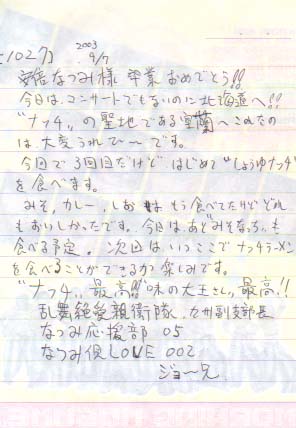 [1027]
2003
9/7
安倍なつみ様 卒業おめでとう!!
今日は、コンサートでもないのに北海道へ!!
"ナッチ"の聖地である室蘭へこれたの
は、大変うれぴ〜です。
今回で3回目だけど、はじめて"しょうゆナッチ"
を食べます。
みそ、カレー、しおは、もう食べてたけどどれ
もおいしかったです。今日は、あと"みそなっち"も
食べる予定。次回はいつここでナッチラーメン
を食べることができるか楽しみです。
"ナッチ"最高!!"味の大王さん"最高!!
乱舞絶愛親衛隊 九州副支部長
なつみ応援部 05
なつみ倶LOVE 002
ジョー兄